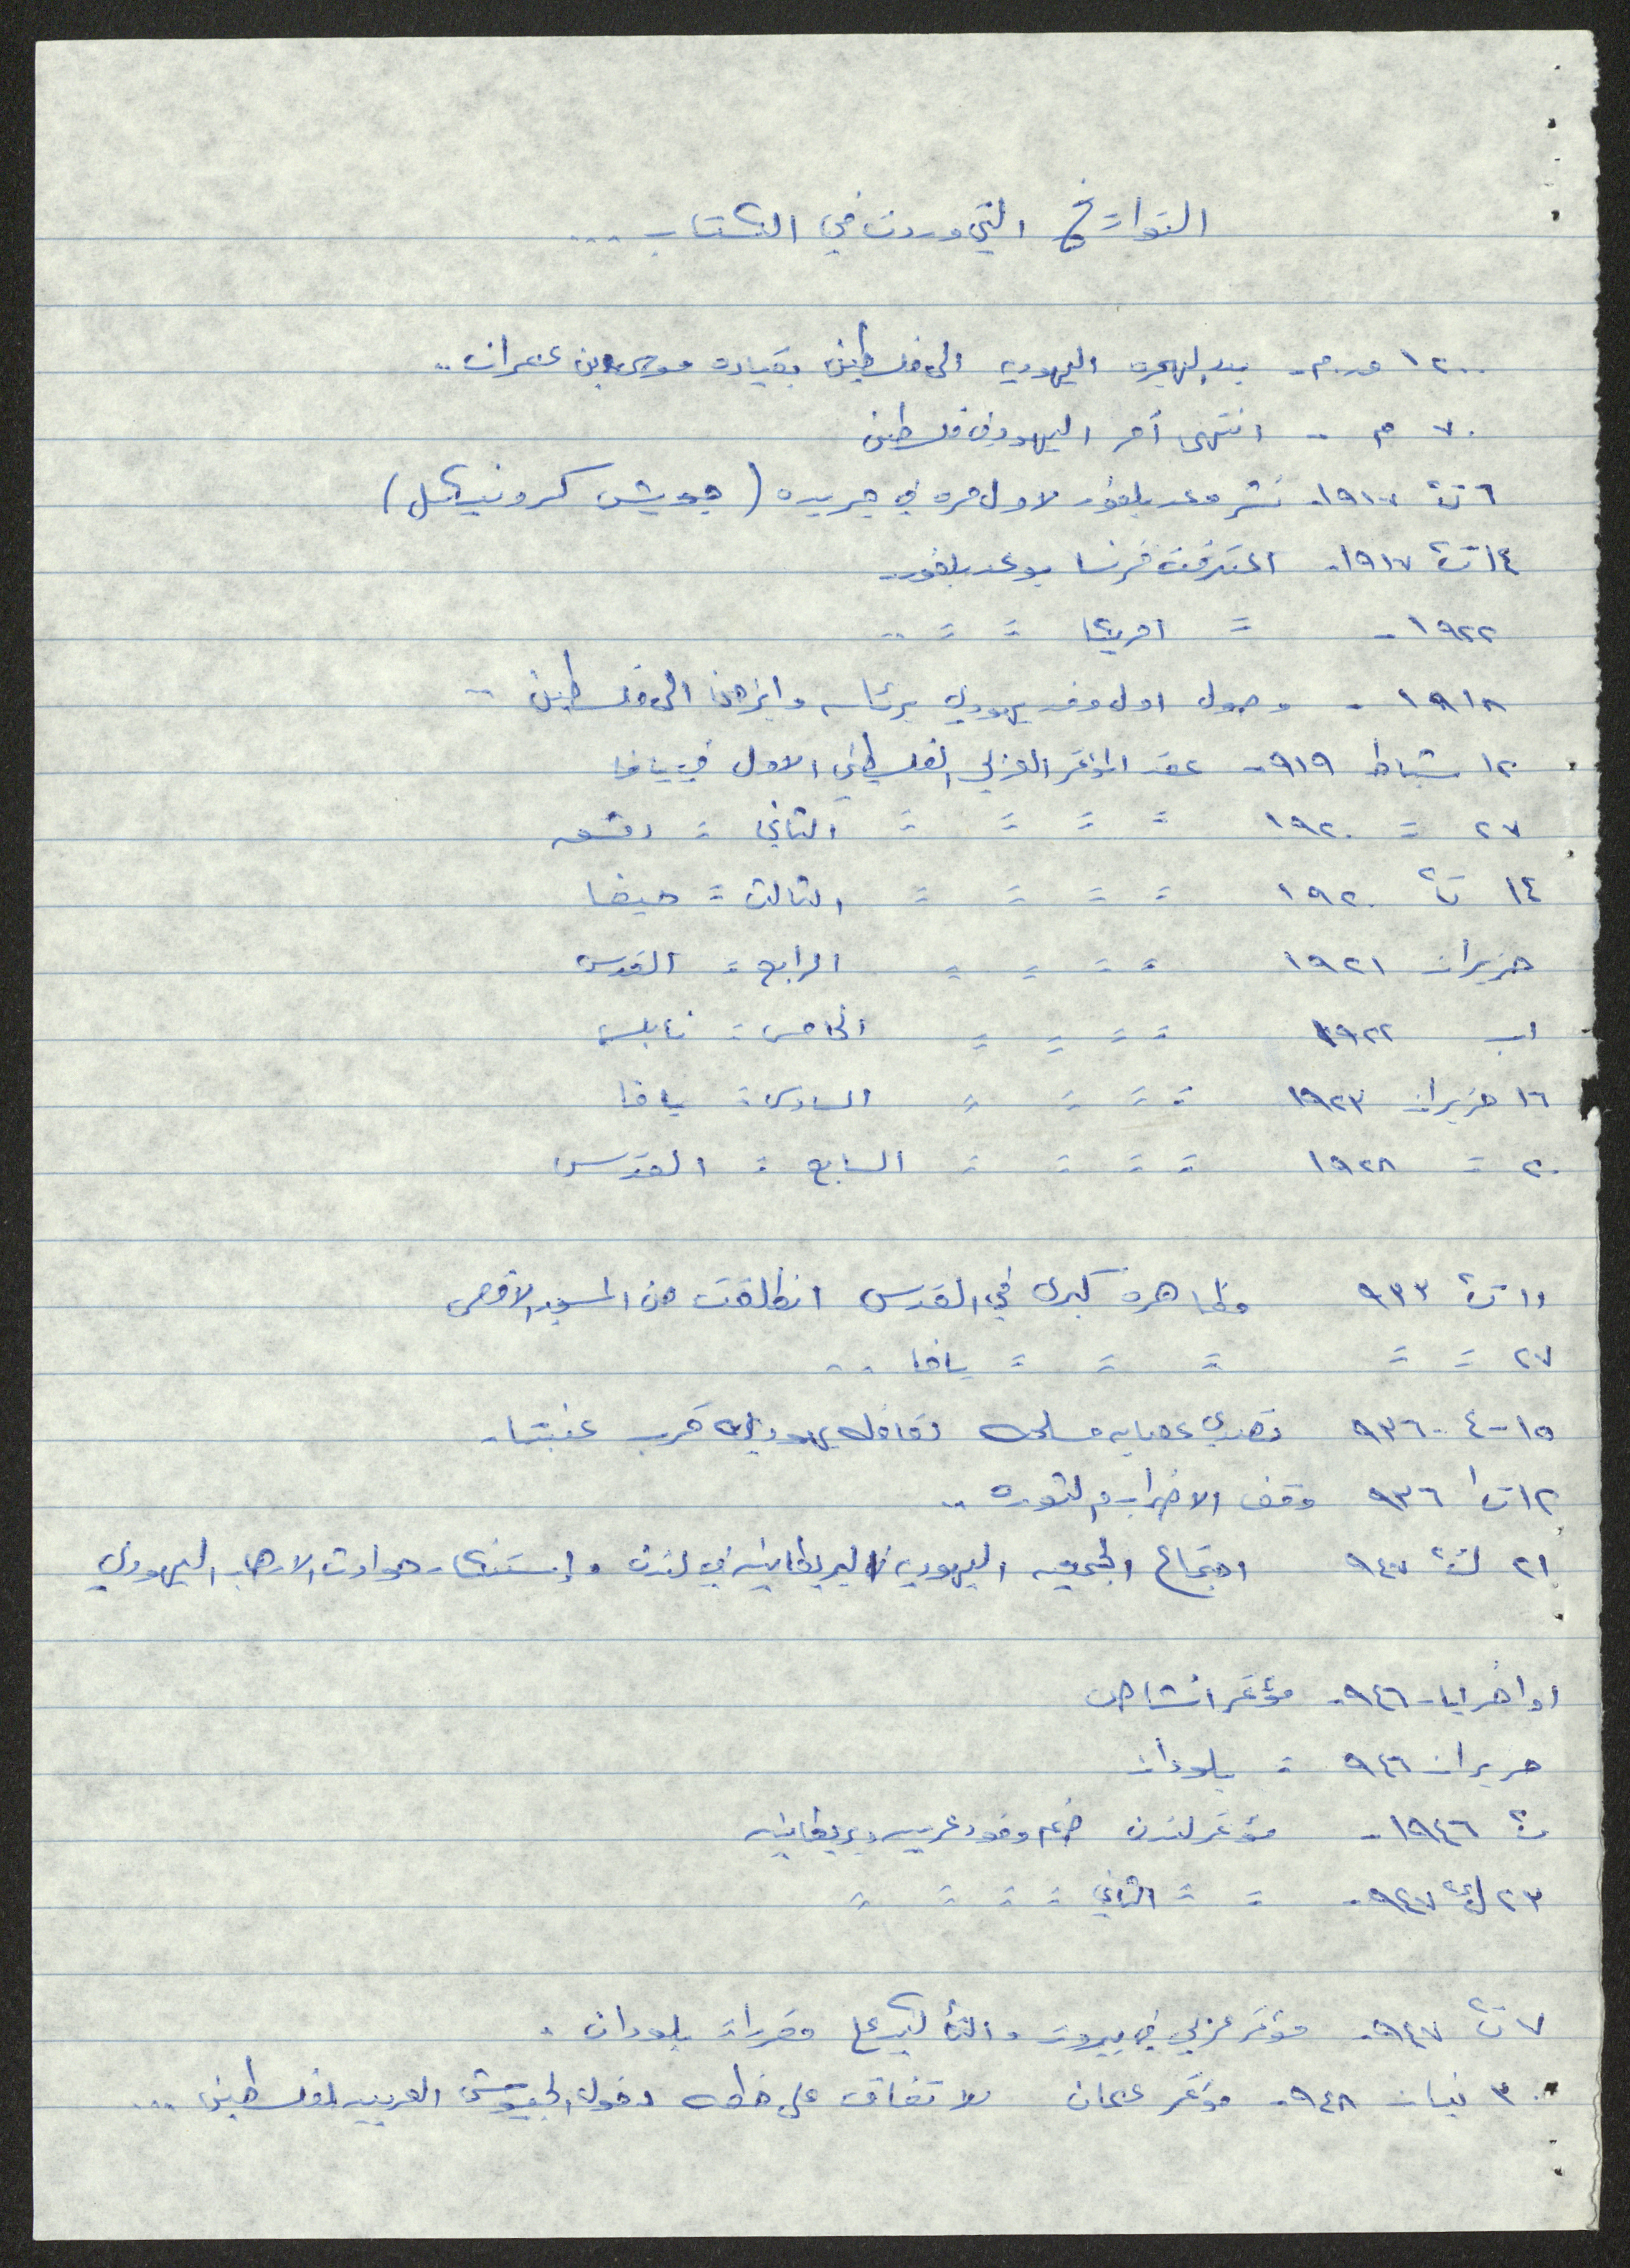 التواريخ التي وردت في الكتاب ...
١٢٠٠ ق.م - بدء الهجره اليهوديه الى فلسطين بقياده موسى بن عمران ..
٧٠ م - انتهى أمر اليهود في فلسطين
٦ ت٢ ١٩١٧- نشر وعد بلفور لاول مره في جريده (جويش كرونيكل)
١٤ ت٢ ١٩١٧- اعترفت فرنسا بوعد بلفور
١٩٢٢ - = امريكا = = ..
١٩١٨ - وصول اول وفد يهودي برئاسه وايزمن الى فلسطين ..
١٢ شباط ٩١٩- عقد المؤتمر العربي الفلسطيني الاول في يافا
٢٧ = ١٩٢٠ = = = = الثاني = دمشق
١٤ ت٢ ١٩٢٠ = = = = الثالث = حيفا
حزيران ١٩٢١ = = = = الرابع = القدس
اب ١٩٢٢ = = = = الخامس = نابلس
١٦ حزيران ١٩٢٣ = = = = السادس = يافا
٢٠ = ١٩٢٨ = = = = السابع = القدس
١١ ت٢ ٩٣٣ مظاهره كبرى في القدس انطلقت من المسجد الاقصى
٢٧ = = = = = يافا ..
١٥-٤-٩٣٦ تصدي عصابه مسلحه لقافله يهوديه قرب عنبتا.
١٢ ت١ ٩٣٦ وقف الاضراب والثوره ..
٢١ ك٢ ٩٤٧ اجتماع الجمعيه اليهوديه البريطانيه في لندن وإستنكار حوادث الارهاب اليهودي
اواخر ايار ٩٤٦- مؤتمر انشاص
حزيران ٩٤٦ = بلودان
ت٢ ١٩٤٦ - مؤتمر لندن ضم وفود عربيه وبريطانيه
٢٣ ك٢ ٩٤٧- = = الثاني = = = =
٧ ت٢ ٩٤٧- مؤتمر عربي في بيروت والتأكيد على مقررات بلودان .
٣٠ نيسان ٩٤٨- مؤتمر عمان للاتفاق على خطه دخول الجيوش العربيه لفلسطين ...